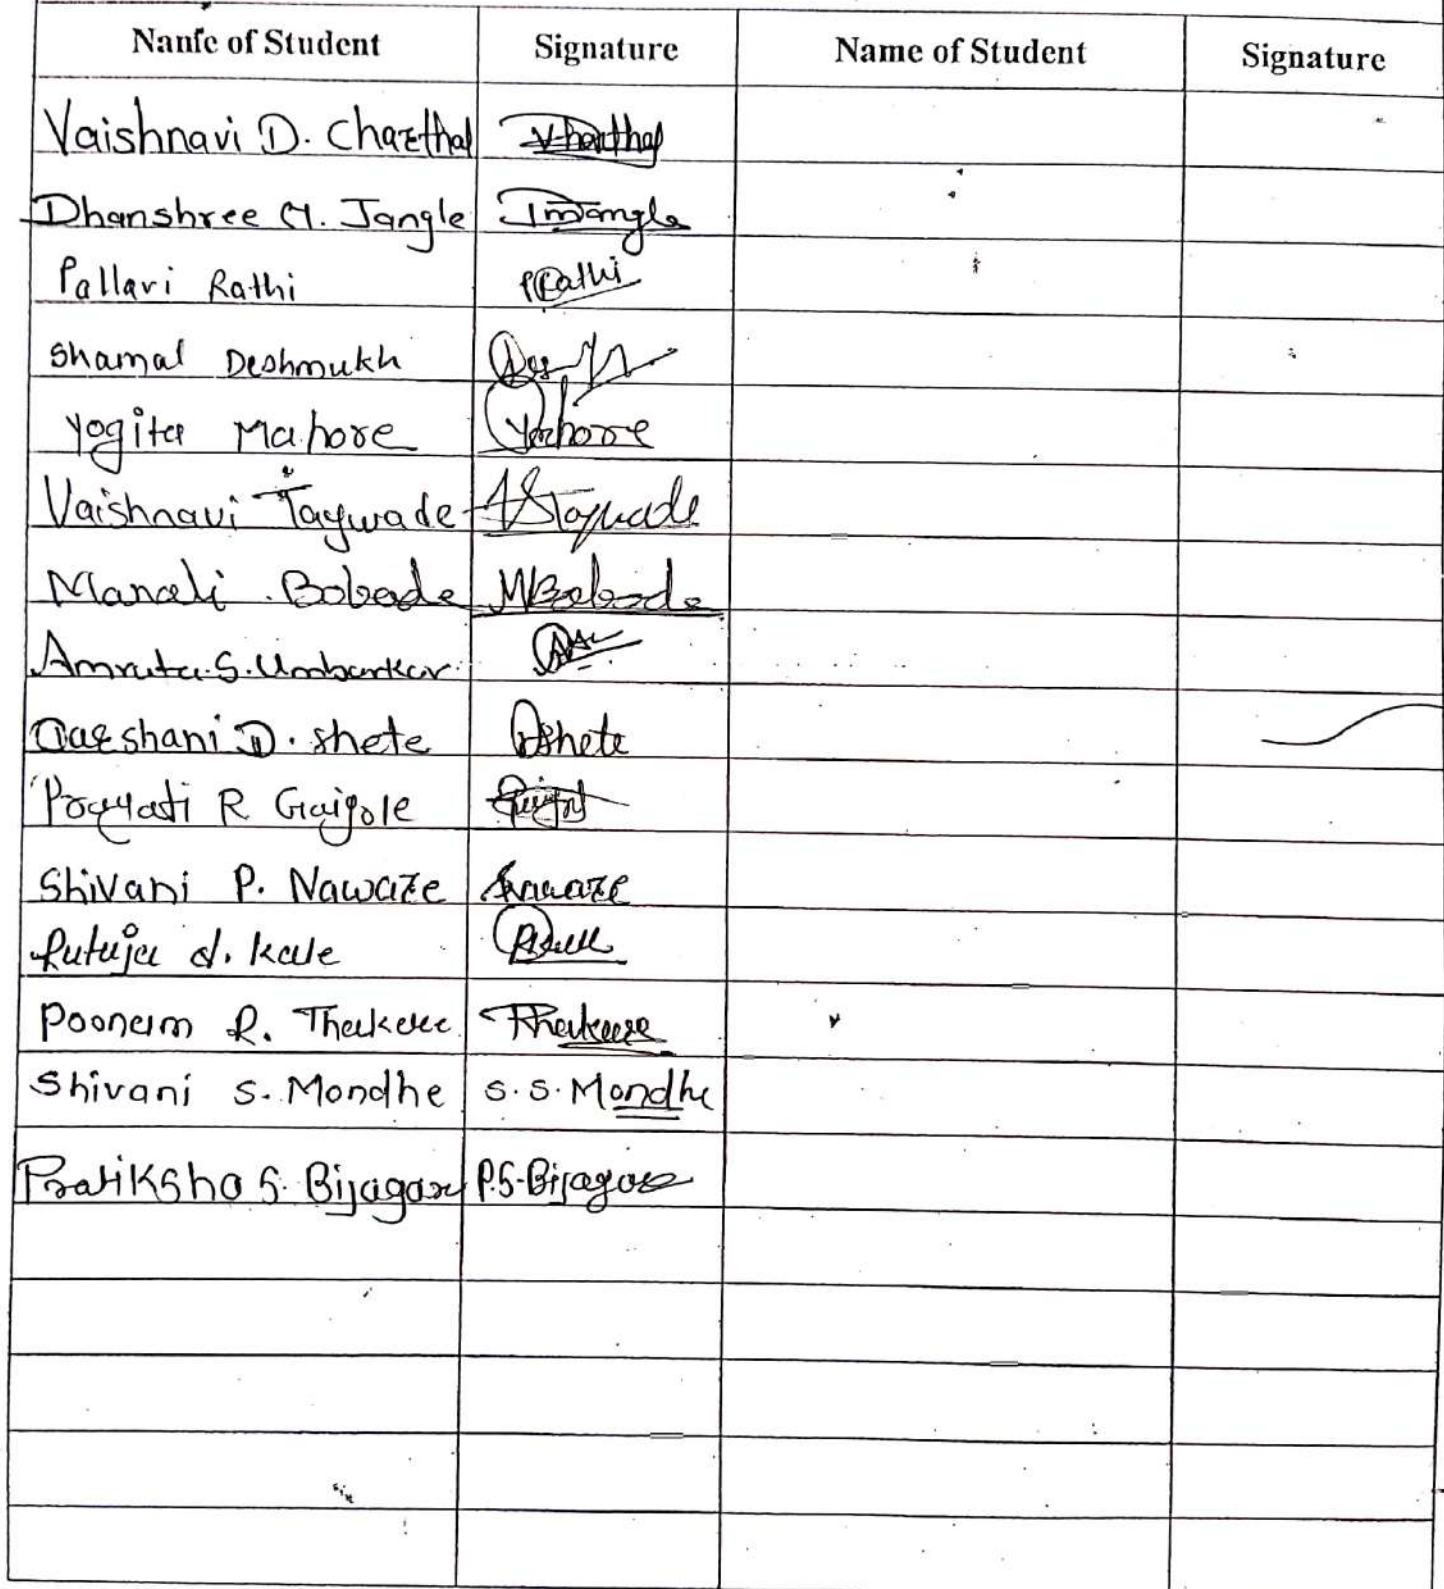 Name of Student Signature Name of Student Signature
Vaishnavi D. Charthal
Dhanshree M. Jangle Jangle
Pallavi Rathi PRathi
Shamal Deshmukh
Yogita Mahore Ymahore
Vaishnavi Taywade VSTaywade
Manali Bobade MBobade
Amruta S. Umbarkar
Darshani D. Shete DShete
Pragati R Gaigole
Shivani P. Naware Snaware
Rutuja J. Kale
Poonam R. Thakare Thakare
Shivani S. Mondhe S. S. Mondhe
Pratiksha S. Bijagare P.S. Bijagare